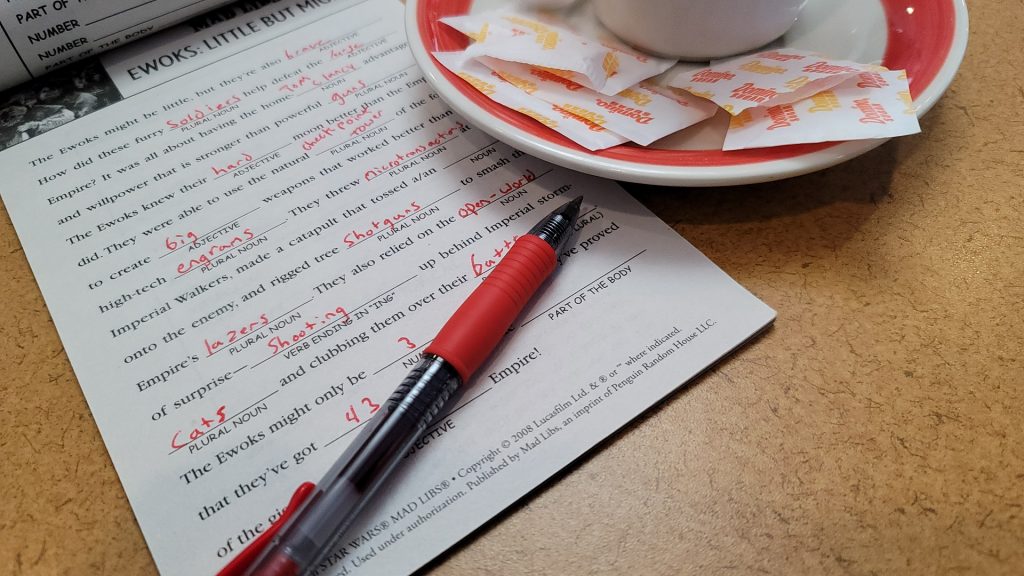 PART OF
NUMBER
NUMBER
PART OF THE BODY
EWOKS: LITTLE BUT
The Ewoks might be little, but they're also brave
ADJECTIVE
How did these furry Soldiers help defeat the huge
PLURAL NOUN ADJECTIVE
Empire? It was all about having the home- Tom Clancy advantage
NOUN
and willpower that is stronger than powerful guns
PLURAL NOUN
The Ewoks knew their hard moon better than the
ADJECTIVE
did. They were able to use the natural of the
PLURAL NOUN
to create big weapons that worked better than
ADJECTIVE
high-tech engrams. They threw at
PLURAL NOUN PLURAL NOUN
Imperial Walkers, made a catapult that tossed a/an
NOUN
onto the enemy, and rigged tree shotguns to smash the
PLURAL NOUN
Empire's lazers. They also relied on the open-world
PLURAL NOUN NOUN
of surprise—shooting up behind Imperial storm-
VERB ENDING IN "ING"
cats and clubbing them over their
PLURAL NOUN
The Ewoks might only be 3 've proved
that they've got 43
PART OF THE BODY
of the Empire!
ADJECTIVE
STAR WARS® MAD LIBS® • Copyright © 2008 Lucasfilm Ltd. & ® or ™ where indicated.
Used under authorization. Published by Mad Libs, an imprint of Penguin Random House LLC.
Domino